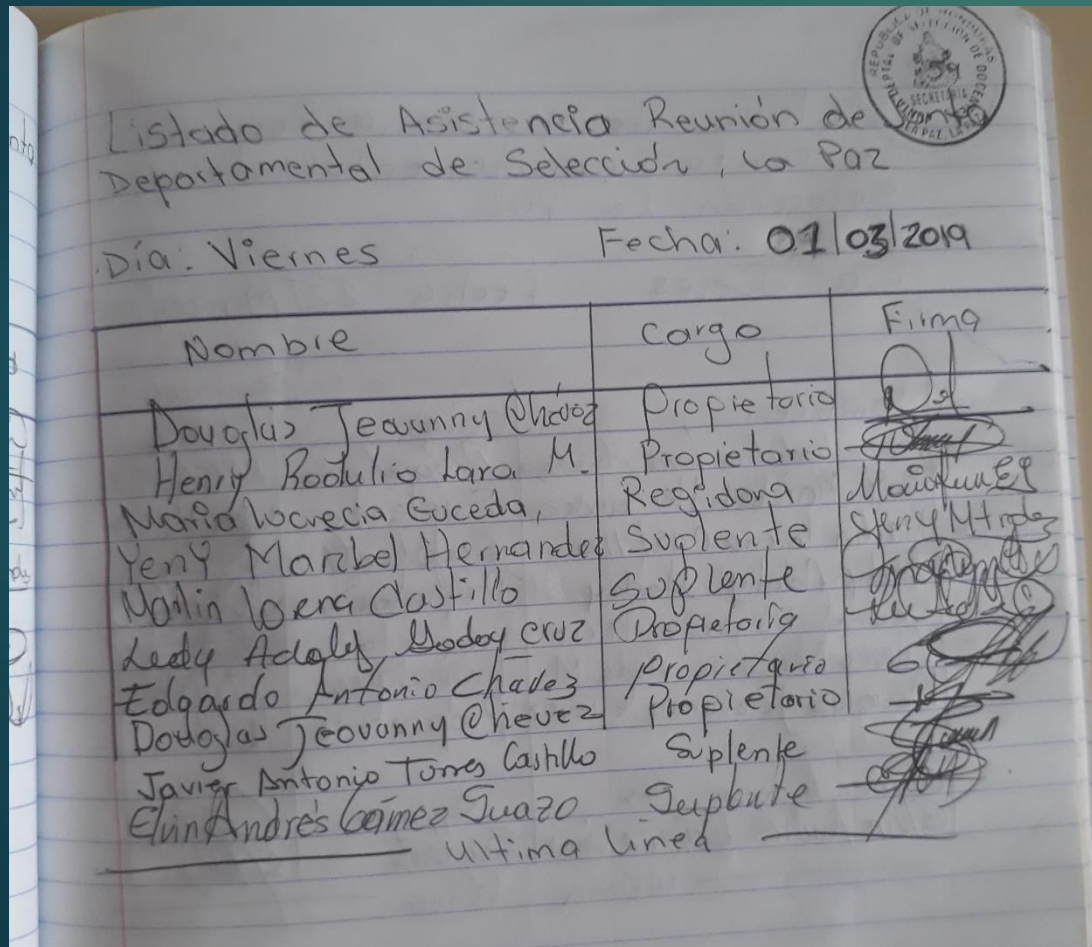 Listado de Asistencia Reunión de Junta
Departamental de Selección, La Paz
Día: Viernes Fecha: 01/03/2019
Nombre Cargo Firma
Douglas Jeovanny Chévez Propietario
Henry Rodulio Lara M. Propietario
Maria Lucrecia Euceda, Regidora
Yeny Maribel Hernandez Suplente
Marlin Lorena Castillo Suplente
Leedy Adaly Godoy Cruz Propietaria
Edgardo Antonio Chavez propietario
Douglas Jeovanny Chevez Propietario
Javier Antonio Torres Castillo Suplente
Elvin Andrés Gámez Suazo Suplente
Ultima linea